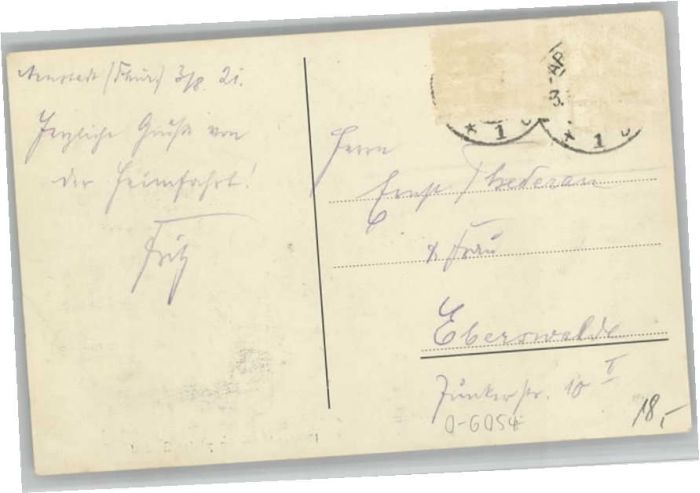 Arnstadt (Thür) 3/8. 21.
Herzliche Grüße von
der Heimfahrt!
Fritz
Herrn
Ernst Thederan
& Frau
Eberswalde
Junkerstr. 10 II
0-6054
18,-
* 1
* 1